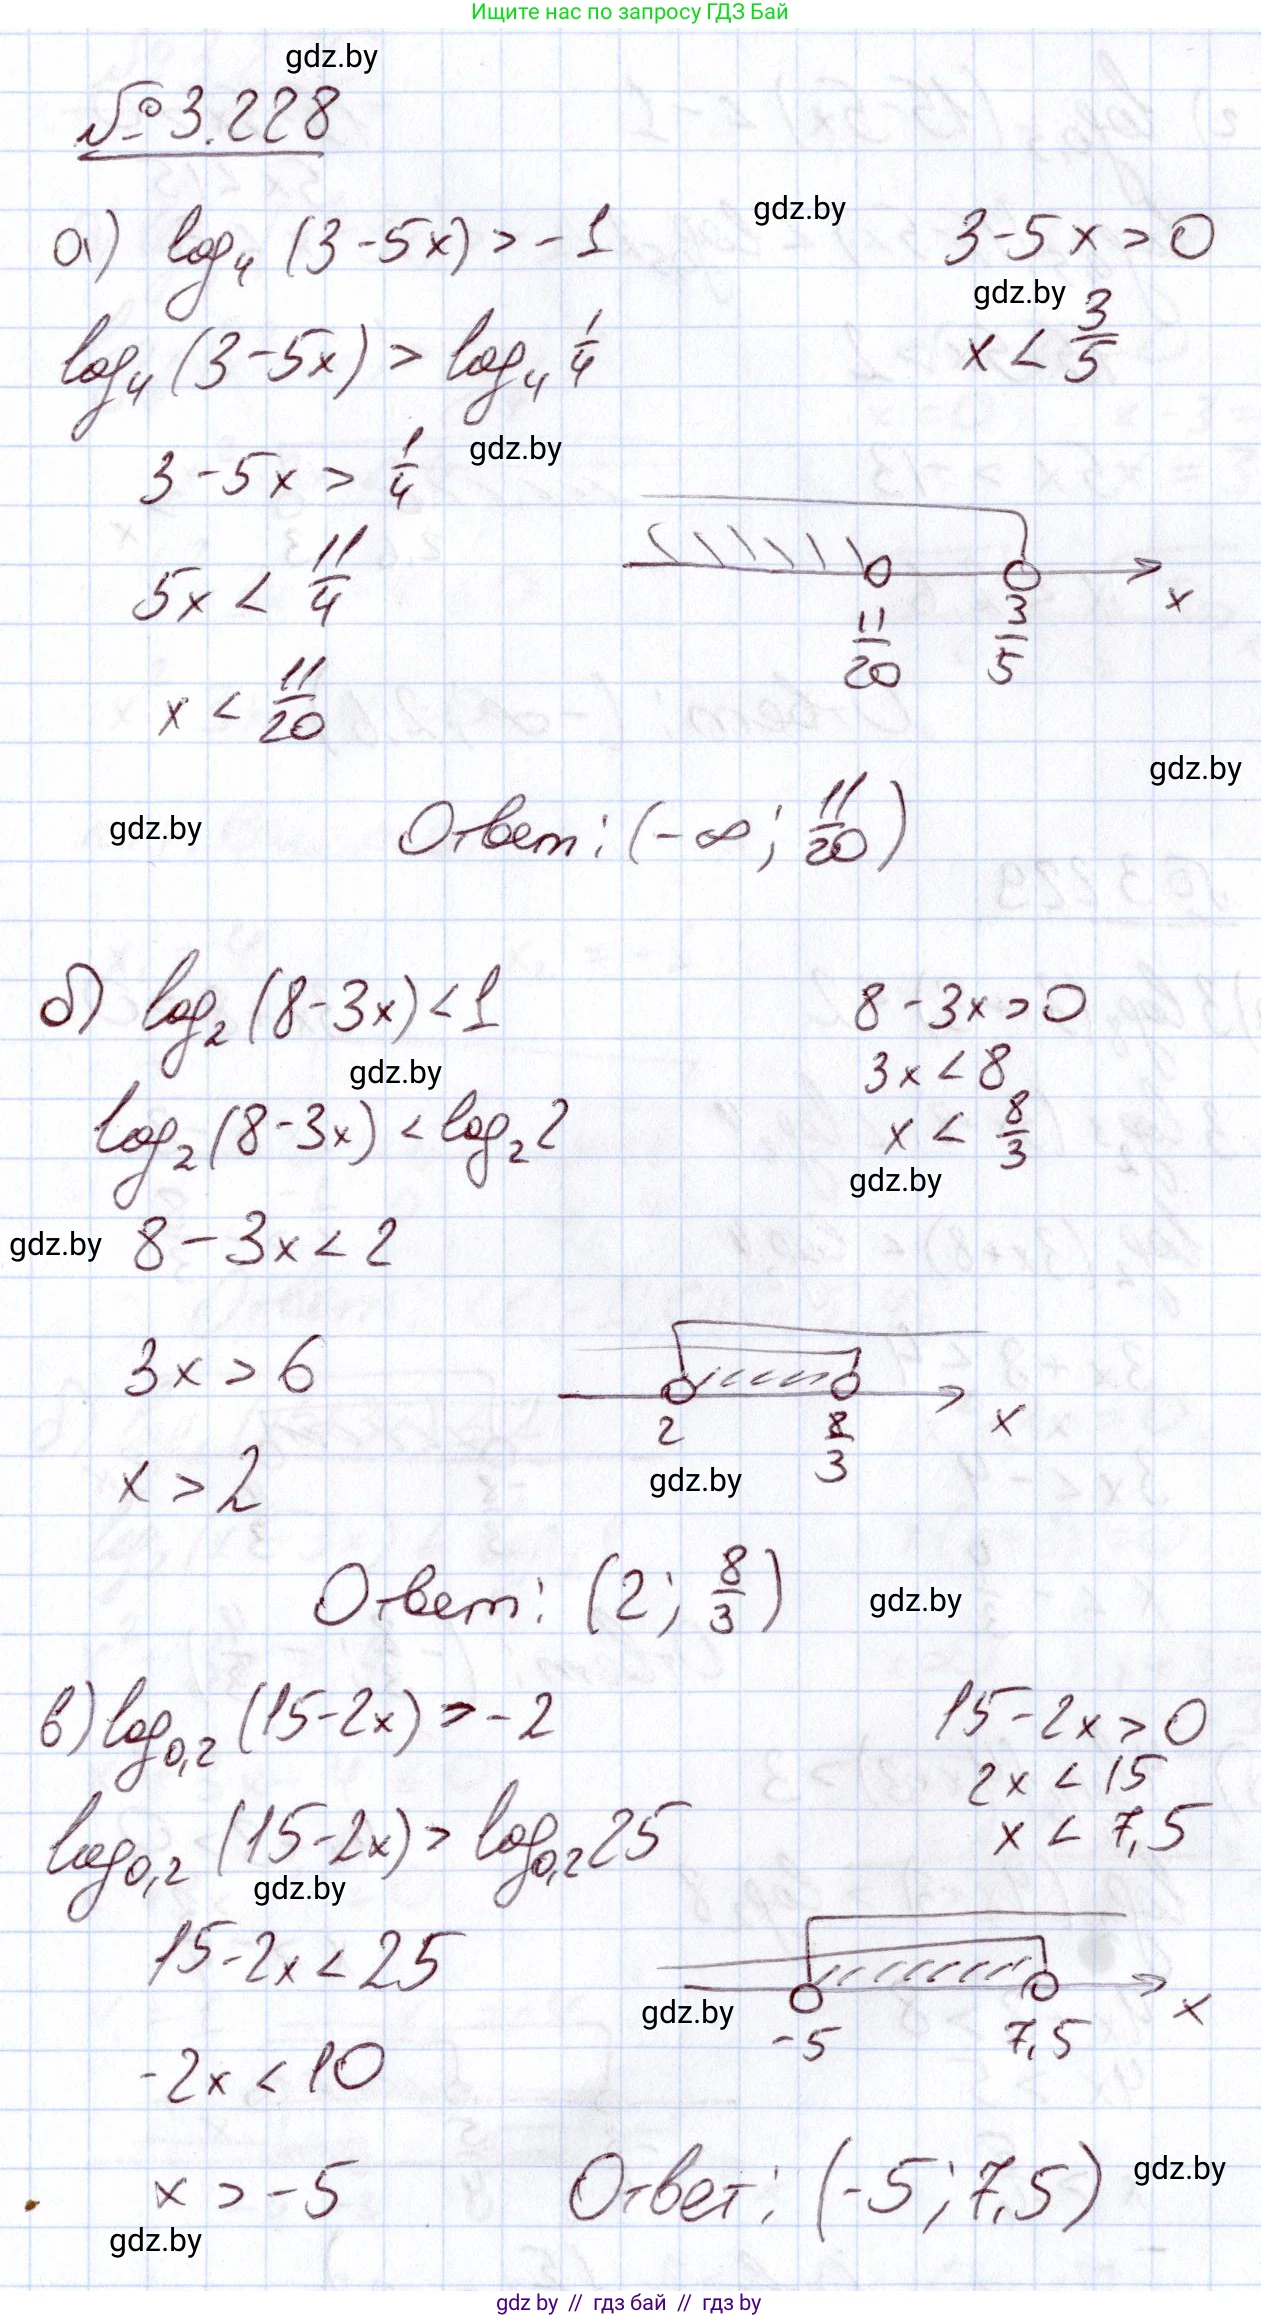 Ищите нас по запросу ГДЗ Бай
gdz.by
№ 3.228
gdz.by
а) log₄ (3-5x) > -1
3-5x > 0
gdz.by
log₄ (3-5x) > log₄ 1/4
x < 3/5
gdz.by
3-5x > 1/4
5x < 11/4
x
11/20 3/5
x < 11/20
gdz.by
gdz.by
Ответ: (-∞; 11/20)
б) log₂ (8-3x) < 1
8-3x > 0
gdz.by
3x < 8
log₂ (8-3x) < log₂ 2
x < 8/3
gdz.by
gdz.by
8-3x < 2
3x > 6
x
2 8/3
gdz.by
x > 2
Ответ: (2; 8/3)
gdz.by
в) log₀,₂ (15-2x) > -2
15-2x > 0
2x < 15
log₀,₂ (15-2x) > log₀,₂ 25
x < 7,5
gdz.by
15-2x < 25
gdz.by
x
-5 7,5
-2x < 10
x > -5
Ответ: (-5; 7,5)
gdz.by
gdz.by
gdz by // гдз бай // гдз by